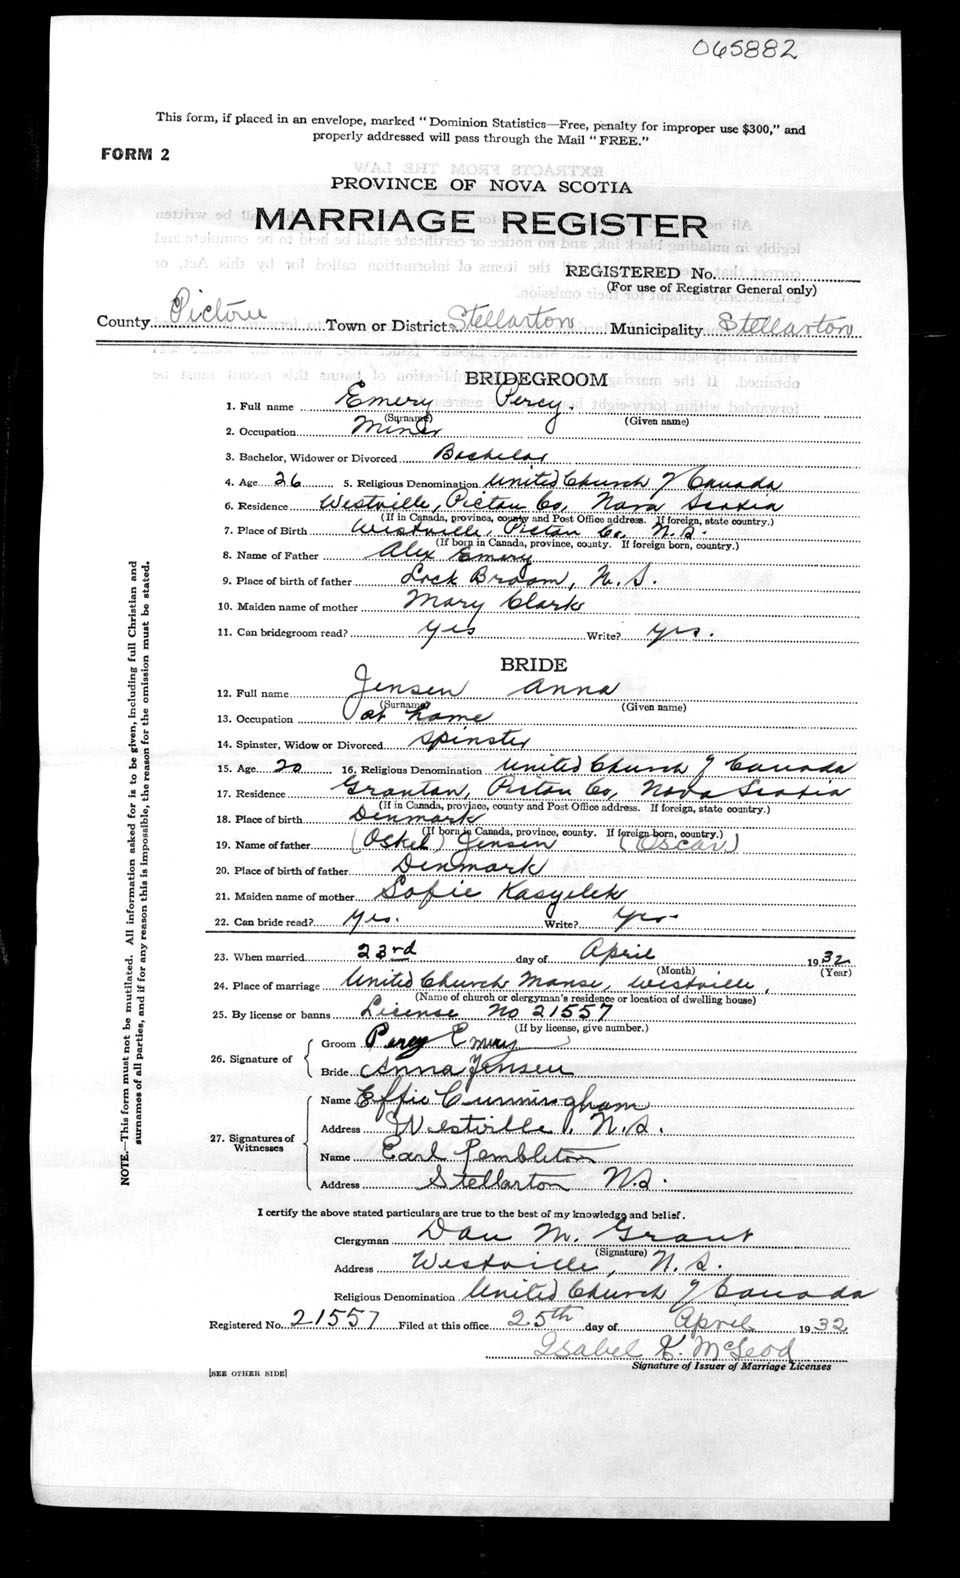 065882
This form, if placed in an envelope, marked "Dominion Statistics—Free, penalty for improper use $300," and
properly addressed will pass through the Mail "FREE."
FORM 2
PROVINCE OF NOVA SCOTIA
MARRIAGE REGISTER
REGISTERED No.
(For use of Registrar General only)
County Pictou Town or District Stellarton Municipality Stellarton
BRIDEGROOM
1. Full name Emery Percy.
(Surname) (Given name)
2. Occupation Miner
3. Bachelor, Widower or Divorced Bachelor
4. Age 26 5. Religious Denomination United Church of Canada
6. Residence Westville, Pictou Co, Nova Scotia
(If in Canada, province, county and Post Office address. If foreign, state country.)
7. Place of Birth Westville, Pictou Co. N.S.
(If born in Canada, province, county. If foreign born, country.)
8. Name of Father Alex Emery
9. Place of birth of father Lock Broom, N.S.
10. Maiden name of mother Mary Clark
11. Can bridegroom read? yes Write? yes.
BRIDE
12. Full name Jensen Anna
(Surname) (Given name)
13. Occupation at home
14. Spinster, Widow or Divorced Spinster
15. Age 20 16. Religious Denomination United Church of Canada
17. Residence Granton, Pictou Co, Nova Scotia
(If in Canada, province, county and Post Office address. If foreign, state country.)
18. Place of birth Denmark
(If born in Canada, province, county. If foreign born, country.)
19. Name of father (Oskel) Jensen (Oscar)
20. Place of birth of father Denmark
21. Maiden name of mother Sofie
22. Can bride read? Yes. Write? Yes
23. When married 23rd day of April 1932
(Month) (Year)
24. Place of marriage United Church Manse, Westville,
(Name of church or clergyman's residence or location of dwelling house)
25. By license or banns License No 21557
(If by license, give number.)
26. Signature of
Groom Percy Emery
Bride Anna Jensen
27. Signatures of Witnesses
Name Effie Cunningham
Address Westville, N.S.
Name Earl Pembleton
Address Stellarton N.S.
I certify the above stated particulars are true to the best of my knowledge and belief.
Clergyman Dan M. Grant
(Signature)
Address Westville, N.S.
Religious Denomination United Church of Canada
Registered No. 21557 Filed at this office 25th day of April 1932
Isabel K. McLeod
Signature of Issuer of Marriage Licenses
[SEE OTHER SIDE]
NOTE.—This form must not be mutilated. All information asked for is to be given, including full Christian and
surnames of all parties, and if for any reason this is impossible, the reason for the omission must be stated.